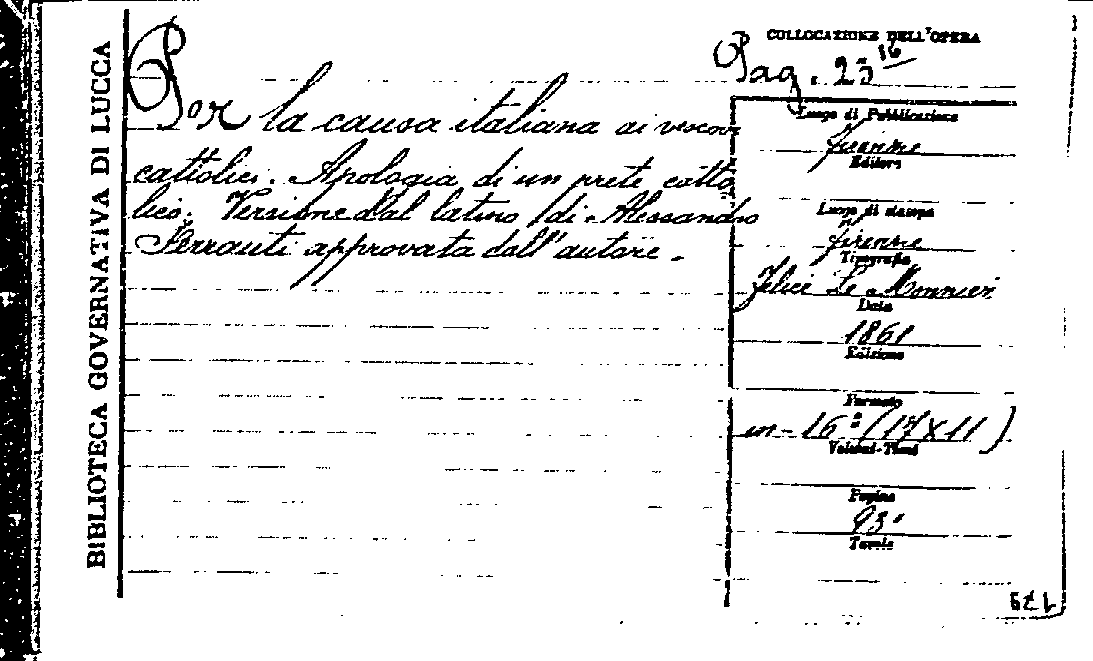 BIBLIOTECA GOVERNATIVA DI LUCCA
COLLOCAZIONE DELL'OPERA
Pag. 23 16
Per la causa italiana ai vescovi
cattolici. Apologia di un prete catto
lico. Versione dal latino di Alessandro
Ferranti approvata dall'autore.
Luogo di Pubblicazione
Firenze
Editore
Luogo di stampa
Firenze
Tipografia
Felice Le Monnier
Data
1861
Edizione
Formato
in-16° (17x11)
Volumi-Tomi
Pagine
93.
Tavole